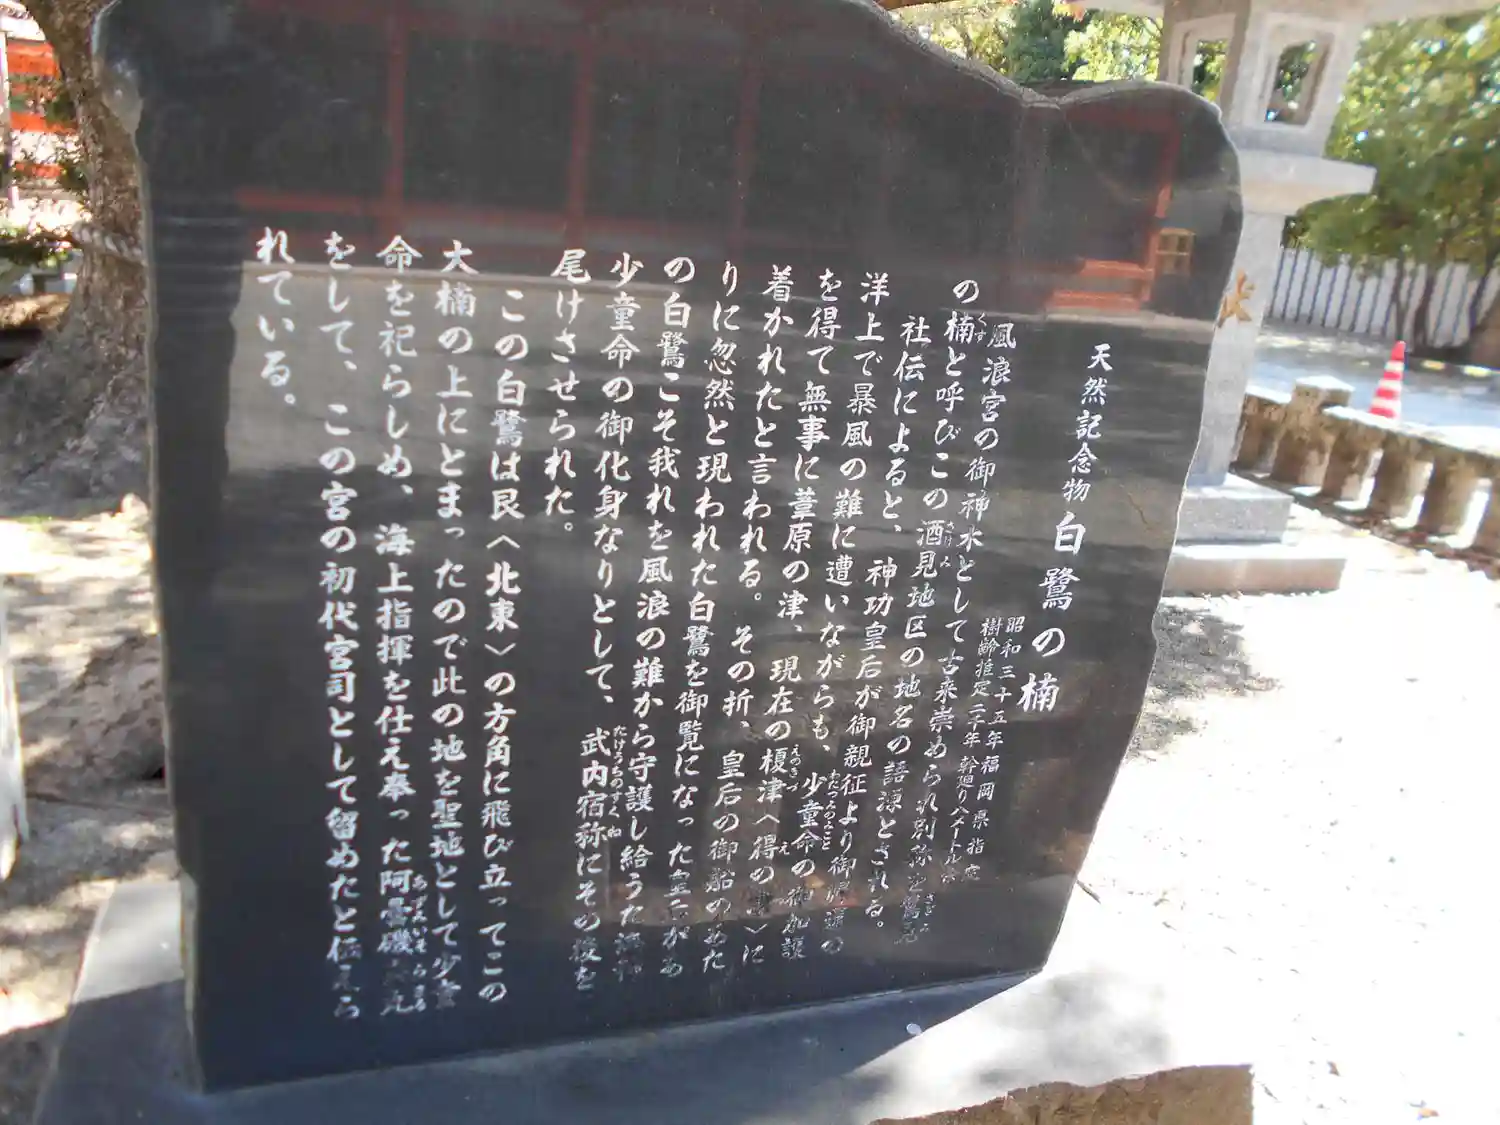 天然記念物 白鷺の楠
昭和三十五年福岡県指定
樹齢推定二千年 幹廻り八メートル
風浪宮の御神木として古来崇められ別称を鷺見
の楠と呼びこの酒見地区の地名の語源とされる。
社伝によると、神功皇后が御親征より御帰還の
洋上で暴風の難に遭いながらも、少童命の御加護
を得て無事に葦原の津、現在の榎津〈得の津〉に
着かれたと言われる。その折、皇后の御船のあた
りに忽然と現われた白鷺を御覧になった皇后があ
の白鷺こそ我れを風浪の難から守護し給うた海神
少童命の御化身なりとして、武内宿弥にその後を
尾けさせられた。
この白鷺は艮〈北東〉の方角に飛び立ってこの
大楠の上にとまったので此の地を聖地として少童
命を祀らしめ、海上指揮を仕え奉った阿曇磯良丸
をして、この宮の初代宮司として留めたと伝えら
れている。